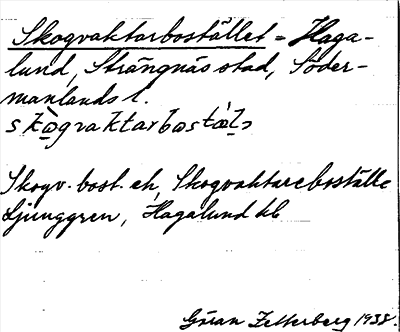 Skogvaktarbostället = Haga-
lund, Strängnäs stad, Söder-
manlands l.
skògvaktarbostä̀lə
Skogv. bost. ek, Skogvaktareboställe
Ljunggren, Hagalund kb
Göran Zetterberg 1938.